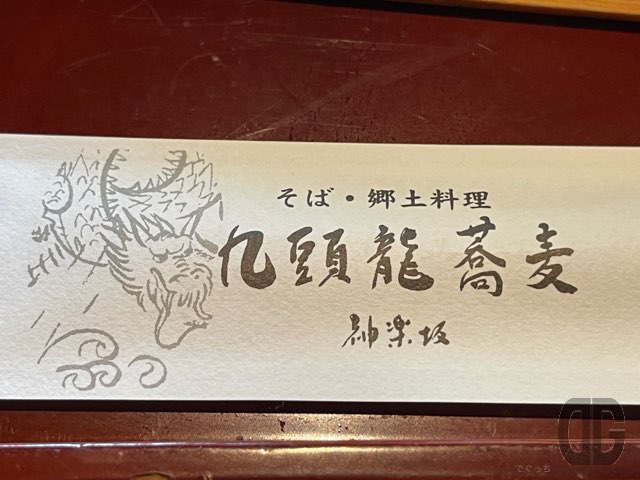 そば・郷土料理
九頭龍蕎麦
神楽坂
でぐっち